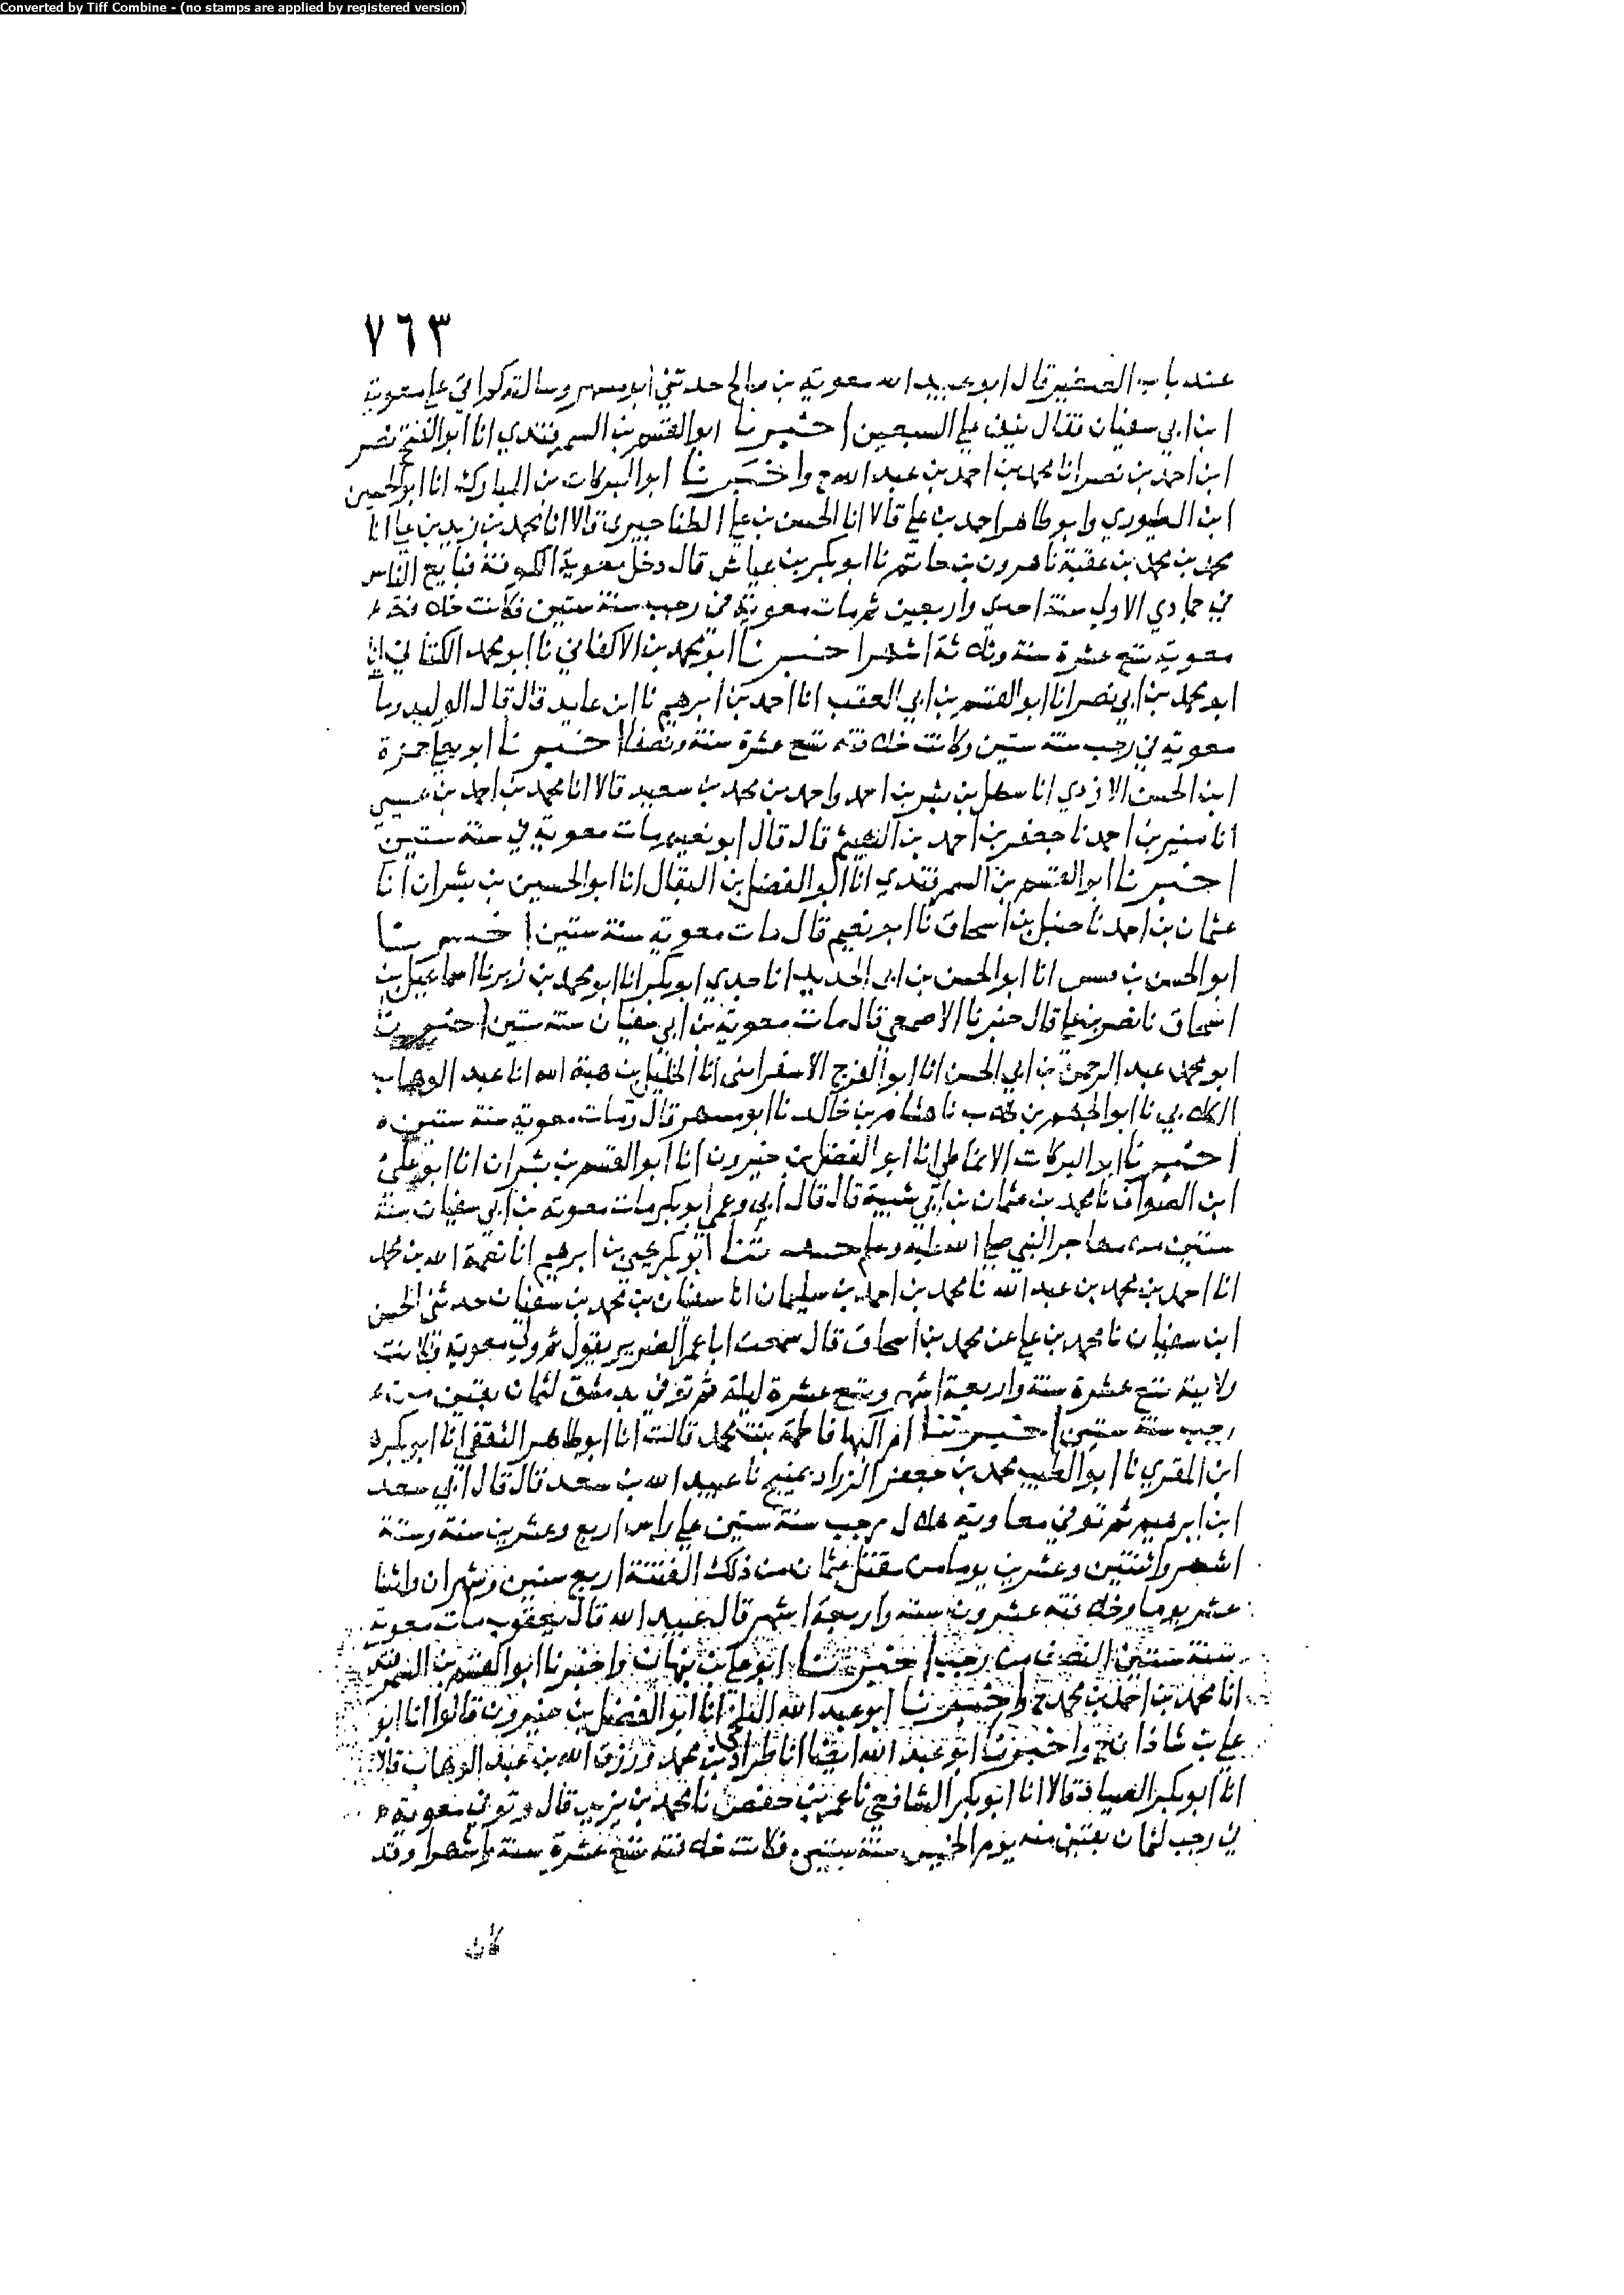 Converted by Tiff Combine - (no stamps are applied by registered version)
٧٦٣
عند باب الصغير قال ابو عبيد الله معوية بن صالح حدثني ابو مسهر وسالته كم اتى على معوية
ابن ابي سفيان فقال نيف على السبعين اخبرنا ابو القسم بن السمرقندي انا ابو الفتح نصر
ابن احمد بن نصر انا محمد بن احمد بن عبد الله ح واخبرنا ابو البركات بن المبارك انا ابو الحسين
ابن الطيوري وابو طاهر احمد بن علي قالا انا الحسين بن علي الطناجيري قالا انا محمد بن زيد بن علي انا
محمد بن محمد بن عقبة نا هرون بن حاتم نا ابو بكر بن عياش قال دخل معوية الكوفة فبايع الناس
في جمادي الاولى سنة احدى واربعين ثم مات معوية في رجب سنة ستين فكانت خلافة
معوية تسع عشرة سنة وثلاثة اشهر اخبرنا ابو محمد بن الاكفاني نا ابو محمد الكتاني انا
ابو محمد بن ابي نصر انا ابو القسم بن ابي العقب انا احمد بن ابرهيم نا ابن عايد قال قال الوليد ومات
معوية في رجب سنة ستين وكانت خلافته تسع عشرة سنة ونصفا اخبرنا ابو يعلى حمزة
ابن الحسن الازدي انا سهل بن بشر بن احمد واحمد بن محمد بن سعيد قالا انا محمد بن احمد بن عيسى
انا منير بن احمد نا جعفر بن احمد بن الهيثم قال قال ابو نعيم ومات معوية في سنة ستين
اخبرنا ابو القسم بن السمرقندي انا ابو الفضل بن البقال انا ابو الحسين بن بشران انا
عثمان بن احمد نا حنبل بن اسحاق نا ابو نعيم قال مات معوية سنة ستين اخبرنا
ابو الحسن بن انا ابو الحسن بن ابي الحديد انا جدي ابو بكر انا ابو محمد بن زبر نا اسماعيل بن
اسحاق نا نصر بن علي قال خبرنا الاصمعي قال مات معوية بن ابي سفيان سنة ستين اخبرنا
ابو محمد عبد الرحمن بن ابي الحسن انا ابو الفرج الاسفرايني انا الخليل بن هبة الله انا عبد الوهاب
الكلابي نا ابو الجهم بن طلاب نا هشام بن خالد نا ابو مسهر قال ومات معوية سنة ستين
اخبرنا ابو البركات الانماطي انا ابو الفضل بن خيرون انا ابو القسم بن بشران انا ابو علي
ابن الصواف نا محمد بن عثمان بن ابي شيبة قال قال ابي وعمي ابو بكر مات معوية بن ابي سفيان سنة
ستين من مهاجر النبي صلى الله عليه وسلم حدثنا ابو بكر يحيى بن ابرهيم انا نعمة الله بن محمد
انا احمد بن محمد بن عبد الله نا محمد بن احمد بن سليمان انا سفيان بن محمد بن سفيان حدثني الحسن
ابن سفيان نا محمد بن علي عن محمد بن اسحاق قال سمعت ابا عمر الضرير يقول ثم ولي معوية وكانت
ولايته تسع عشرة سنة واربعة اشهر وتسع عشرة ليلة ثم توفي بدمشق لثمان بقين من
رجب سنة ستين اخبرتنا ام البها فاطمة بنت محمد قالت انا ابو طاهر الثقفي انا ابو بكر
ابن المقري نا ابو الطيب محمد بن جعفر الزراد بمنبج نا عبيد الله بن سعد قال قال ابي سعد
ابن ابرهيم ثم توفي معاوية هلال رجب سنة ستين على راس اربع وعشرين سنة وستة
اشهر واثنتين وعشرين يوما من مقتل عثمان من ذلك الفتنة اربع سنين وشهران واثنا
عشر يوما وخلافته عشرون سنة واربعة اشهر قال عبيد الله قال يعقوب مات معوية
سنة ستين النصف من رجب اخبرنا ابو علي بن نبهان واخبرنا ابو القسم بن السمرقندي
انا محمد بن احمد بن محمد ح واخبرنا ابو عبد الله البلخي انا ابو الفضل بن خيرون قالوا انا ابو
علي بن شاذان ح واخبرنا ابو عبد الله ايضا انا طراد بن محمد ورزق الله بن عبد الوهاب قالا
انا ابو بكر الصياد قالا انا ابو بكر الشافعي نا عمر بن حفص نا محمد بن يزيد قال وتوفي معوية
في رجب لثمان بقين منه يوم الخميس سنة ستين فكانت خلافته تسع عشرة سنة واشهرا وقد
كان